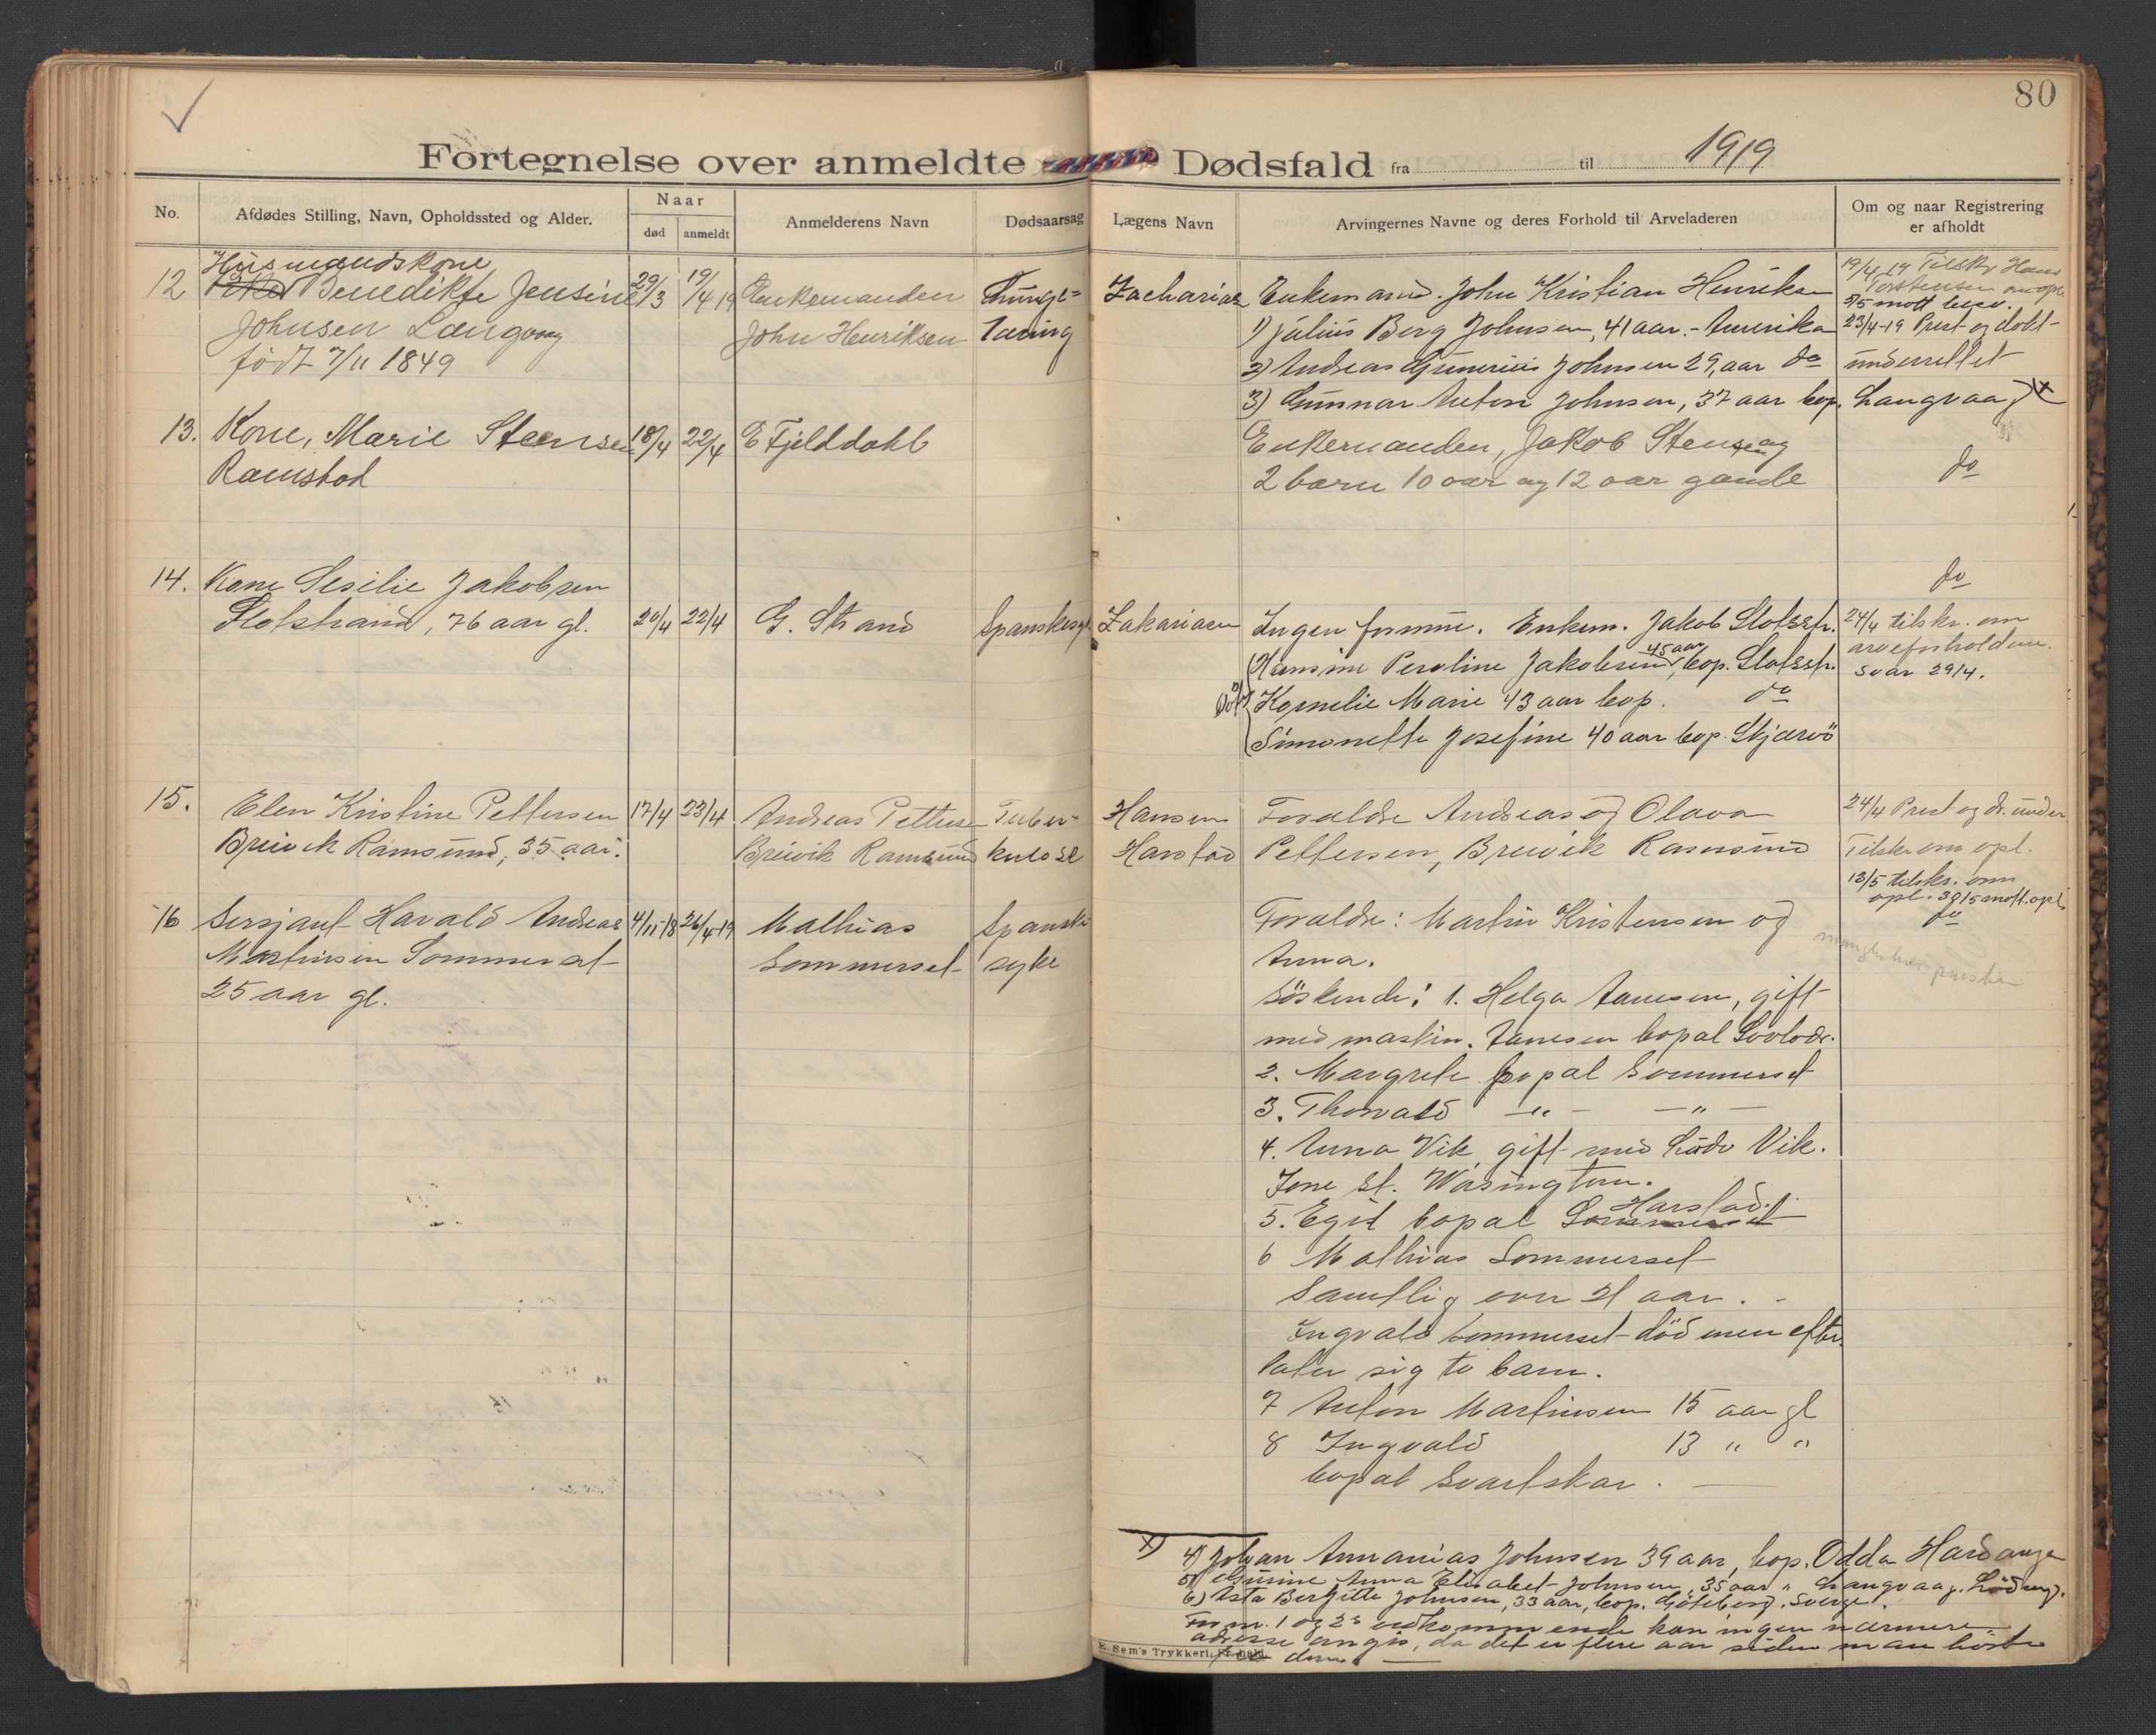 80
Fortegnelse over anmeldte Dødsfald fra til 1919
No.
Afdødes Stilling, Navn, Opholdssted og Alder.
Naar
død
anmeldt
Anmelderens Navn
Dødsaarsag
Lægens Navn
Arvingernes Navne og deres Forhold til Arveladeren
Om og naar Registrering
er afholdt
Husmandskone
12 Benedikte Jensine 29/3 19/4 19 Enkemanden Lunge-
Johnsen Langvaag John Henriksen Tæring
født 7/11 1849
Zachariasen Enkemand. John Kristian Henriksen
1) Julius Berg Johnsen, 41 aar. - Amerika
2) Andreas Gunerius Johnsen 29, aar do
3) Gunnar Anton Johnsen, 37 aar bop. Langvaag
19/4 19 Tilskr. Hans
Torstensen om opl.
3/5 mott besv.
23/4-19 Prest og dokt-
underrettet
13. Kone, Marie Stensen 18/4 22/4 E Fjelddahl
Ramstad
Enkemanden, Jakob Stensen og
2 børn 10 aar og 12 aar gamle
do
14. Kone Sesilie Jakobsen
Slotstrand, 76 aar gl. 20/4 22/4 G. Strand Spanskesyk
do
Zakariasen Ingen formue. Enkem. Jakob Slotsstr.
Hansine Peroline Jakobsen 45 aar, bop. Slotsstr.
Kornelie Marie 43 aar bop. do
Simonette Josefine 40 aar bop. Skjærvö
24/4 tilskr. om
arveforholdene.
svar 29/4.
15. Elen Kristine Pettersen 17/4 23/4 Andreas Pettersen Tuber-
Breivik Ramsund, 35 aar. Breivik Ramsund kulose
Hansen Foraldre Andreas og Olava
Harstad Pettersen, Breivik Ramsund
24/4 Prest og dr. under
Tilskr om opl.
13/5 tilskr. om
opl. 30/5 mott. opl.
16 Sersjant Harald Andreas 4/11-18 26/4-19 Mathias Spanske
Martinsen Sommerset Sommerset syke
25 aar gl.
Foraldre: Martin Kristensen og
Anna.
do
mangler hos presten
Söskende: 1. Helga Aanesen, gift
med maskin. Aanesen bopal
2. Margrete bopal Sommerset
3. Thorvald — " — — " —
4. Anna Vik, gift med Vik.
Jone St. Wasington.
5. Egil bopal Sommerset Harstad.
6 Mathias Sommerset
Samtlig over 21 aar.
Ingvald Sommerset död men efter-
later sig to barn.
7 Anton Martinsen 15 aar gl
8 Ingvald 13 " "
bopal Svartskar.
x) 4) Johan Annanias Johnsen 39 aar, bop. Odda Hardanger
5) Gusine Anna Elisabet Johnsen, 35 aar " Langvaag. Lödingen.
6) Asta Bergitte Johnsen, 33 aar, bop. Göteborg. Sverge.
For nr. 1 og 2s vedkommende kan ingen nærmere
adresse angis, da det er flere aar siden man hörte
fra dem.
E. Sem's Trykkeri, Fr.hald.